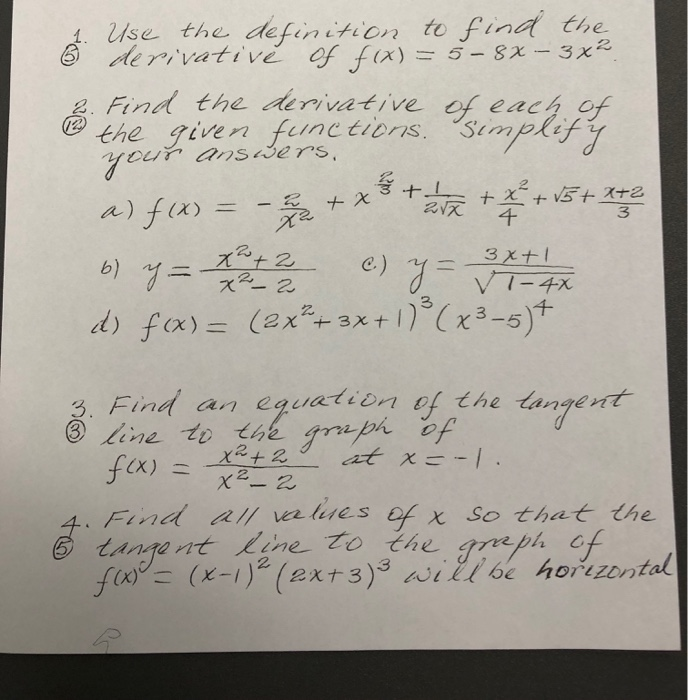 1. Use the definition to find the
⑤ derivative of f(x) = 5 - 8x - 3x²
2. Find the derivative of each of
⑫ the given functions. Simplify
your answers.
a) f(x) = - 2/x² + x^(2/3) + 1/(2√x) + x²/4 + √5 + (x+2)/3
b) y = (x²+2)/(x²-2) c) y = (3x+1)/√(1-4x)
d) f(x) = (2x²+3x+1)³(x³-5)⁴
3. Find an equation of the tangent
③ line to the graph of
f(x) = (x²+2)/(x²-2) at x = -1.
4. Find all values of x so that the
⑤ tangent line to the graph of
f(x) = (x-1)²(2x+3)³ will be horizontal